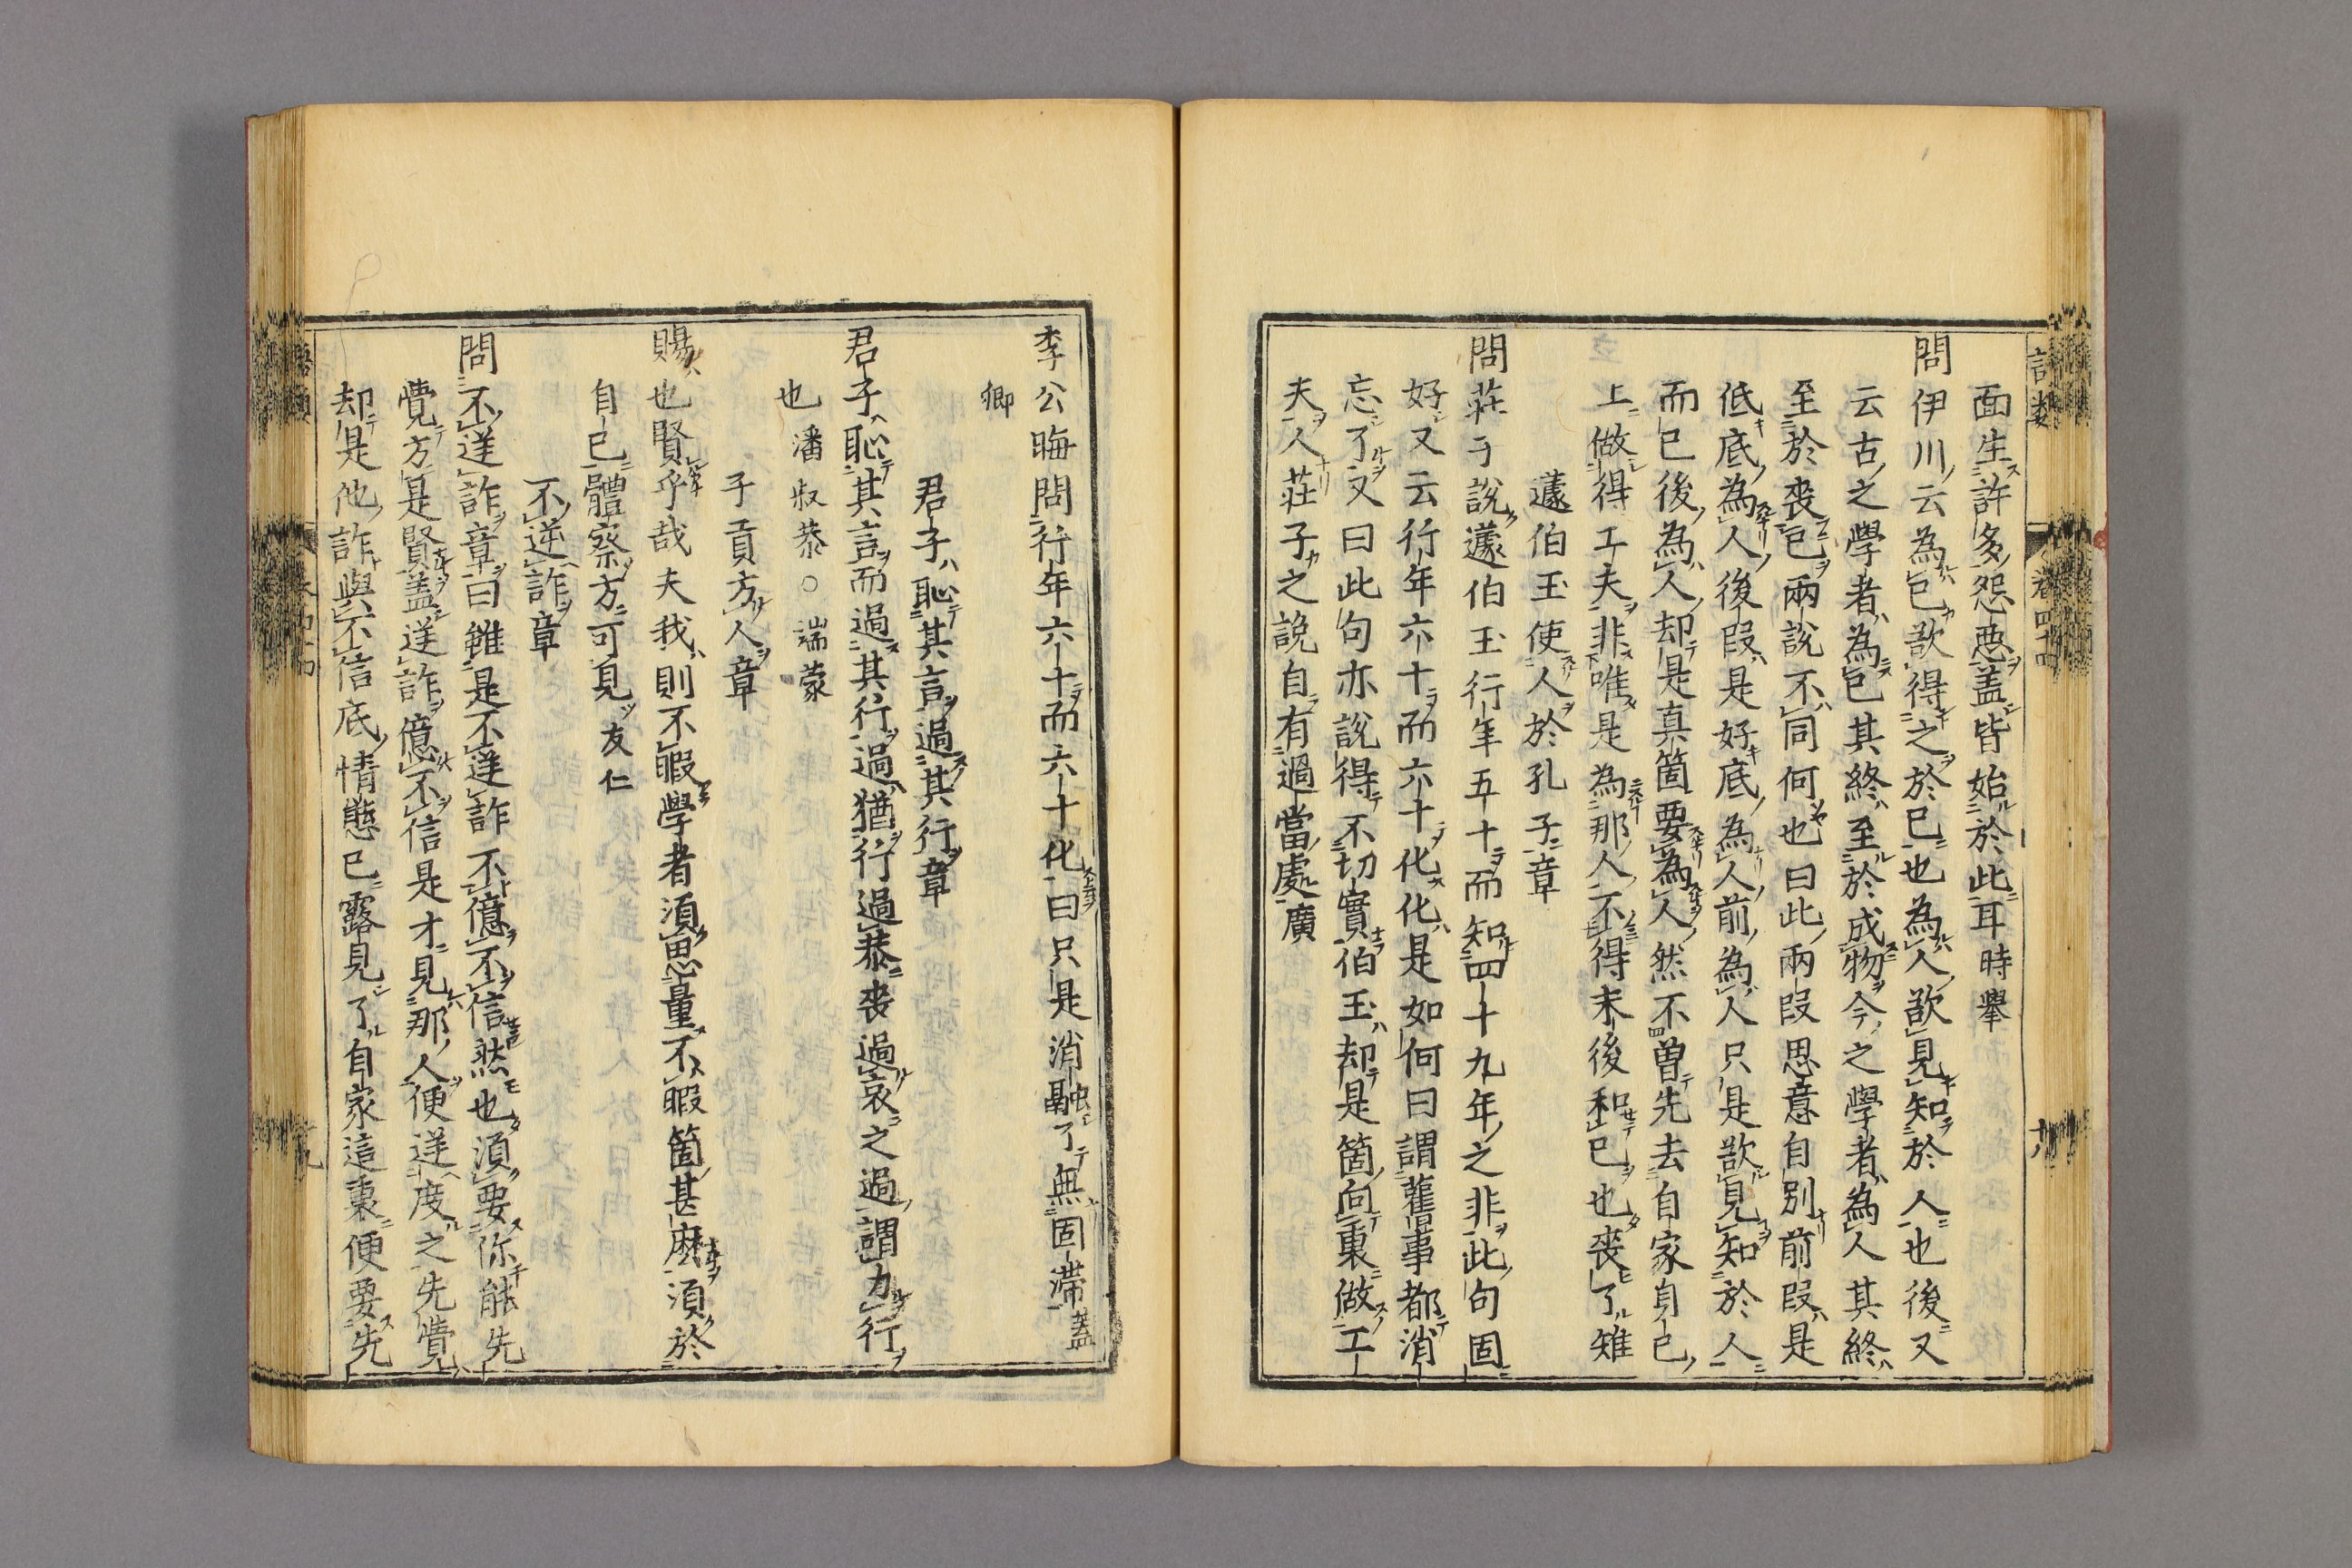 面生許多怨惡盖皆始於此耳時舉
問伊川云為己欲得之於己也為人欲見知於人也後又
云古之學者為己其終至於成物今之學者為人其終
至於喪己兩說不同何也曰此兩段思意自別前段是
低底為人後段是好底為人前為人只是欲見知於人
而已後為人却是真箇要為人然不曽先去自家身己
上做得工夫非唯是為那人不得末後和己也喪了雉
蘧伯玉使人於孔子章
問莊子說蘧伯玉行年五十而知四十九年之非此句固
好又云行年六十而六十化化是如何曰謂舊事都消
忘了又曰此句亦說得不切實伯玉却是箇向裏做工
夫人莊子之說自有過當處廣
語類
卷四十四
十八
李公晦問行年六十而六十化曰只是消融了無固滯蓋
卿
君子恥其言過其行章
君子恥其言而過其行過猶行過恭喪過哀之過謂力行
也潘叔恭○端蒙
子貢方人章
賜也賢乎哉夫我則不暇學者須思量不暇箇甚麽須於
自己體察方可見友仁
不逆詐章
問不逆詐章曰雖是不逆詐不億不信然也須要你能先
覺方是賢盖逆詐億不信是才見那人便逆度之先覺
却是他詐與不信底情態已露見了自家這裏便要先